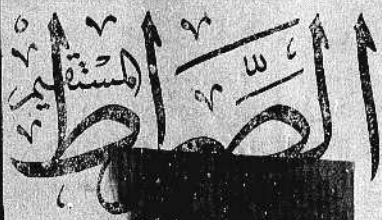 الصّراط المستقيم